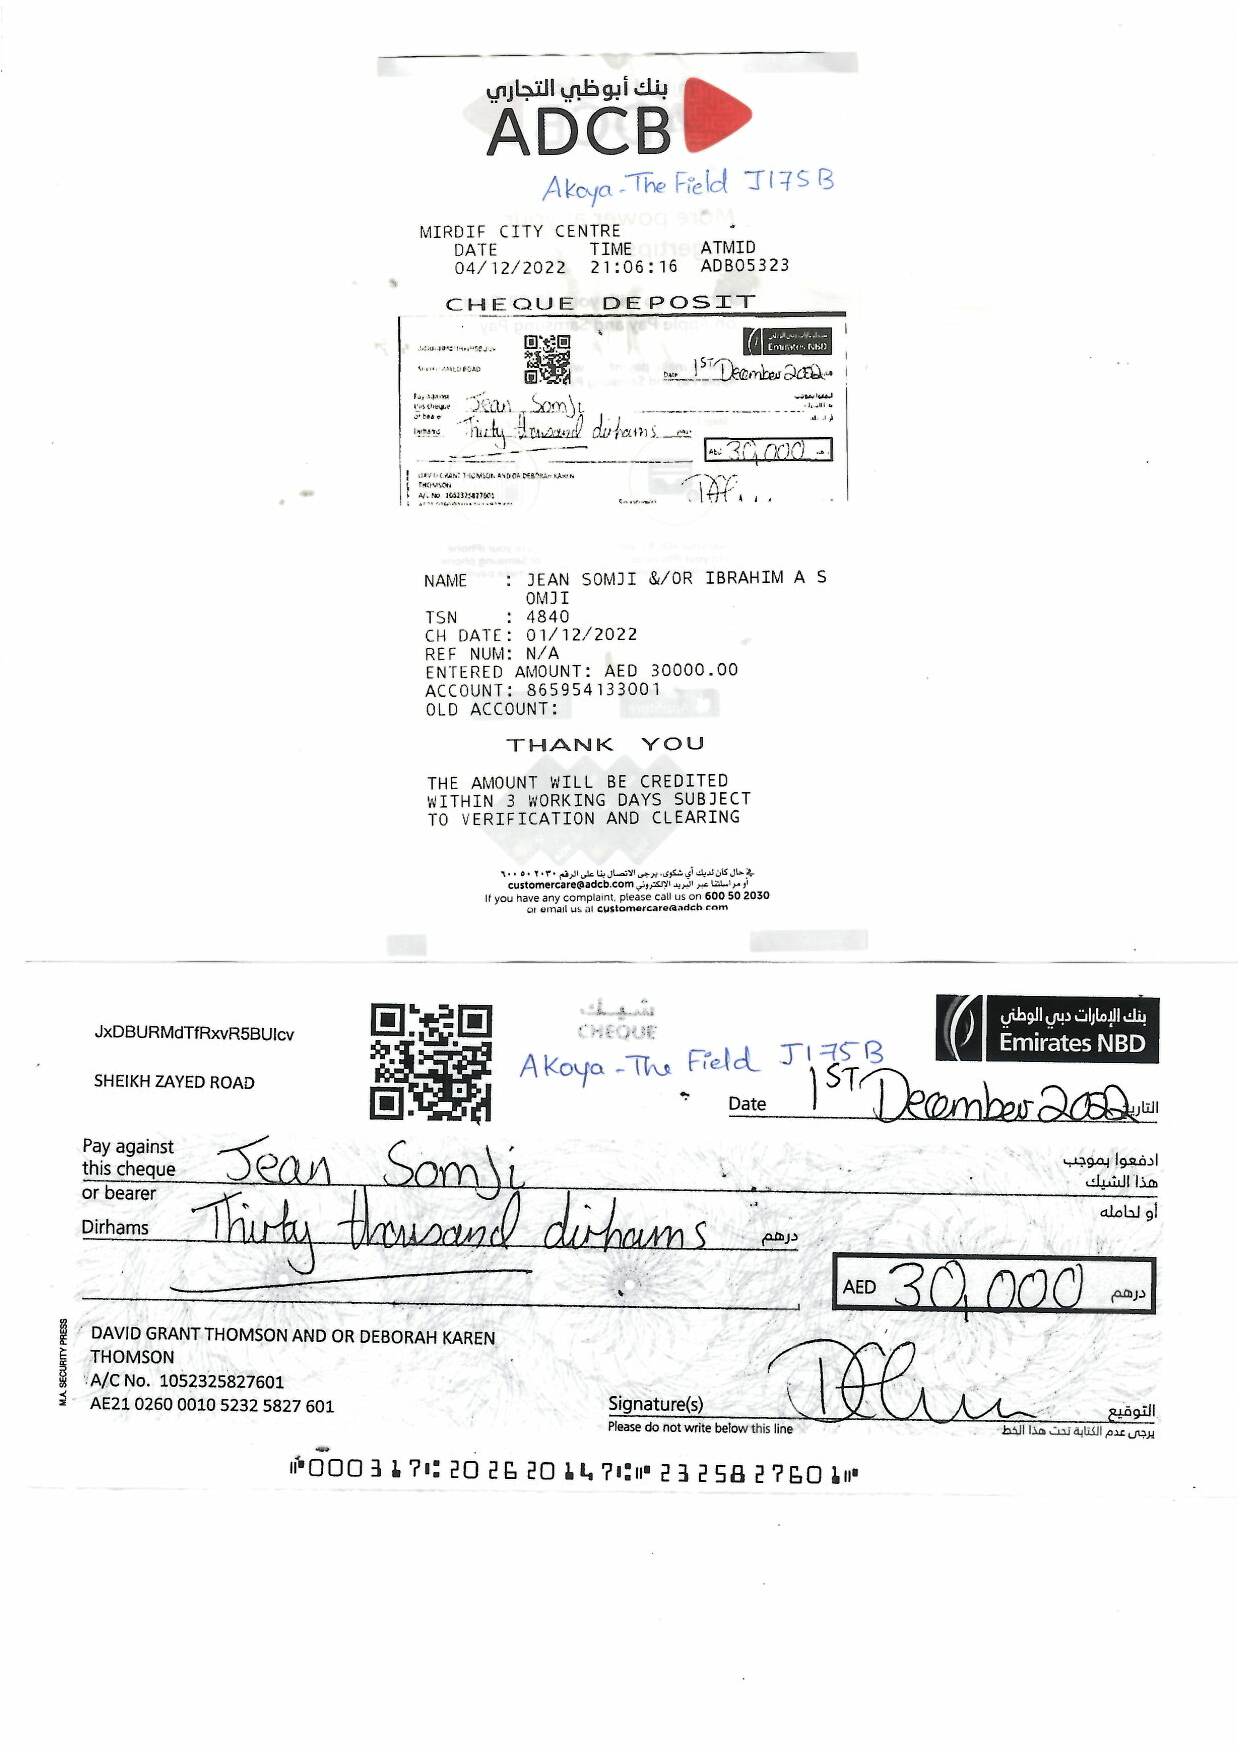 بنك أبوظبي التجاري
ADCB
Akoya - The Field J175B
MIRDIF CITY CENTRE
DATE TIME ATMID
04/12/2022 21:06:16 ADB05323
CHEQUE DEPOSIT
Emirates NBD
Date 1ST December 2022
Pay against
this cheque Jean Somji
or bearer
Dirhams Thirty thousand dirhams درهم
AED 30,000
DAVID GRANT THOMSON AND OR DEBORAH KAREN
THOMSON
A/C No 1052325827601
NAME : JEAN SOMJI &/OR IBRAHIM A S
OMJI
TSN : 4840
CH DATE: 01/12/2022
REF NUM: N/A
ENTERED AMOUNT: AED 30000.00
ACCOUNT: 865954133001
OLD ACCOUNT:
THANK YOU
THE AMOUNT WILL BE CREDITED
WITHIN 3 WORKING DAYS SUBJECT
TO VERIFICATION AND CLEARING
في حال كان لديك أي شكوى، يرجى الاتصال بنا على الرقم ٦٠٠ ٥٠ ٢٠٣٠
أو مراسلتنا عبر البريد الإلكتروني customercare@adcb.com
If you have any complaint, please call us on 600 50 2030
or email us at customercare@adcb.com
JxDBURMdTfRxvR5BUIcv
شيك
CHEQUE
بنك الإمارات دبي الوطني
Emirates NBD
Akoya - The Field J175B
SHEIKH ZAYED ROAD
Date 1ST December 2022 التاريخ
Pay against
this cheque Jean Somji
ادفعوا بموجب
هذا الشيك
or bearer أو لحامله
Dirhams Thirty thousand dirhams درهم
AED 30,000 درهم
M.A. SECURITY PRESS
DAVID GRANT THOMSON AND OR DEBORAH KAREN
THOMSON
A/C No. 1052325827601
AE21 0260 0010 5232 5827 601
Signature(s) التوقيع
Please do not write below this line يرجى عدم الكتابة تحت هذا الخط
⑈000317⑆202620147⑆⑈2325827601⑈